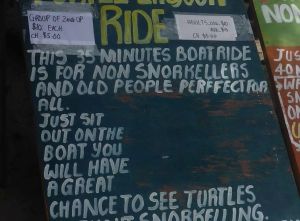 RIDE
GROUP OF 2nd UP
$10. EACH
CH $5.00
THIS 35 MINUTES BOATRIDE
IS FOR NON SNORKELLERS
AND OLD PEOPLE PERFFECT FOR
ALL.
JUST SIT
OUT ON THE
BOAT YOU
WILL HAVE
A GREAT
CHANCE TO SEE TURTLES
SNORKELLING.
NON